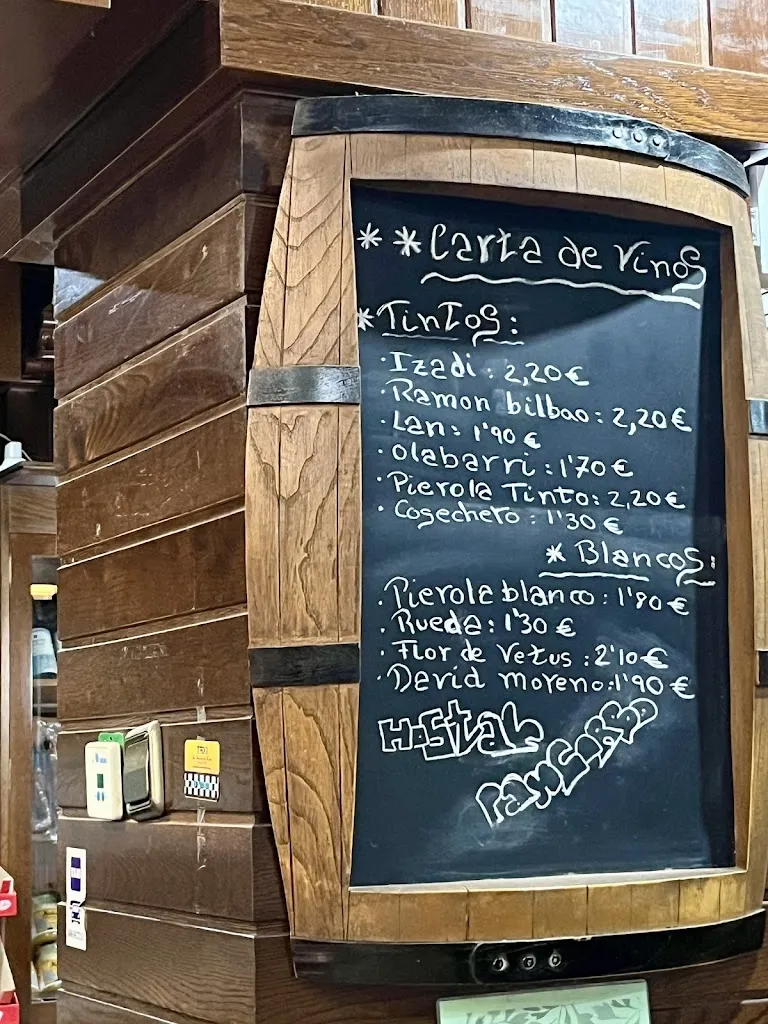 ** Carta de Vinos
* Tintos:
· Izadi: 2,20 €
· Ramon bilbao: 2,20 €
· Lan: 1'90 €
· Olabarri: 1'70 €
· Pierola Tinto: 2,20 €
· Cosechero: 1'30 €
* Blancos:
· Pierola blanco: 1'80 €
· Rueda: 1'30 €
· Flor de Vetus: 2'10 €
· David moreno: 1'90 €
Hostal